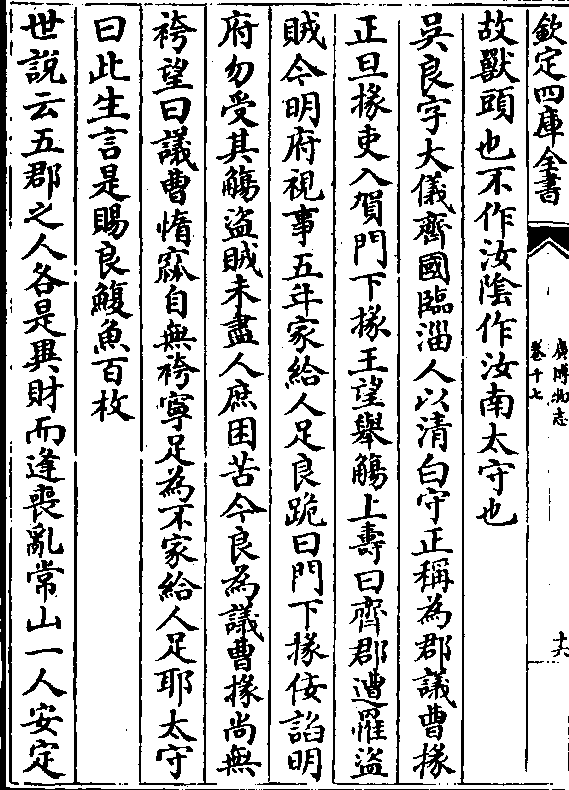 欽定四庫全書
廣博物志
卷十七
十六
故獸頭也不作汝陰作汝南太守也
吳良字大儀齊國臨淄人以清白守正稱為郡議曹掾
正旦掾吏入賀門下掾王望舉觴上壽曰齊郡遭罹盜
賊今明府視事五年家給人足良跪曰門下掾佞諂明
府勿受其觴盜賊未盡人庶困苦今良為議曹掾尚無
袴望曰議曹惰窳自無袴寧足為不家給人足耶太守
曰此生言是賜良鰒魚百枚
世說云五郡之人各是異財而逢喪亂常山一人安定